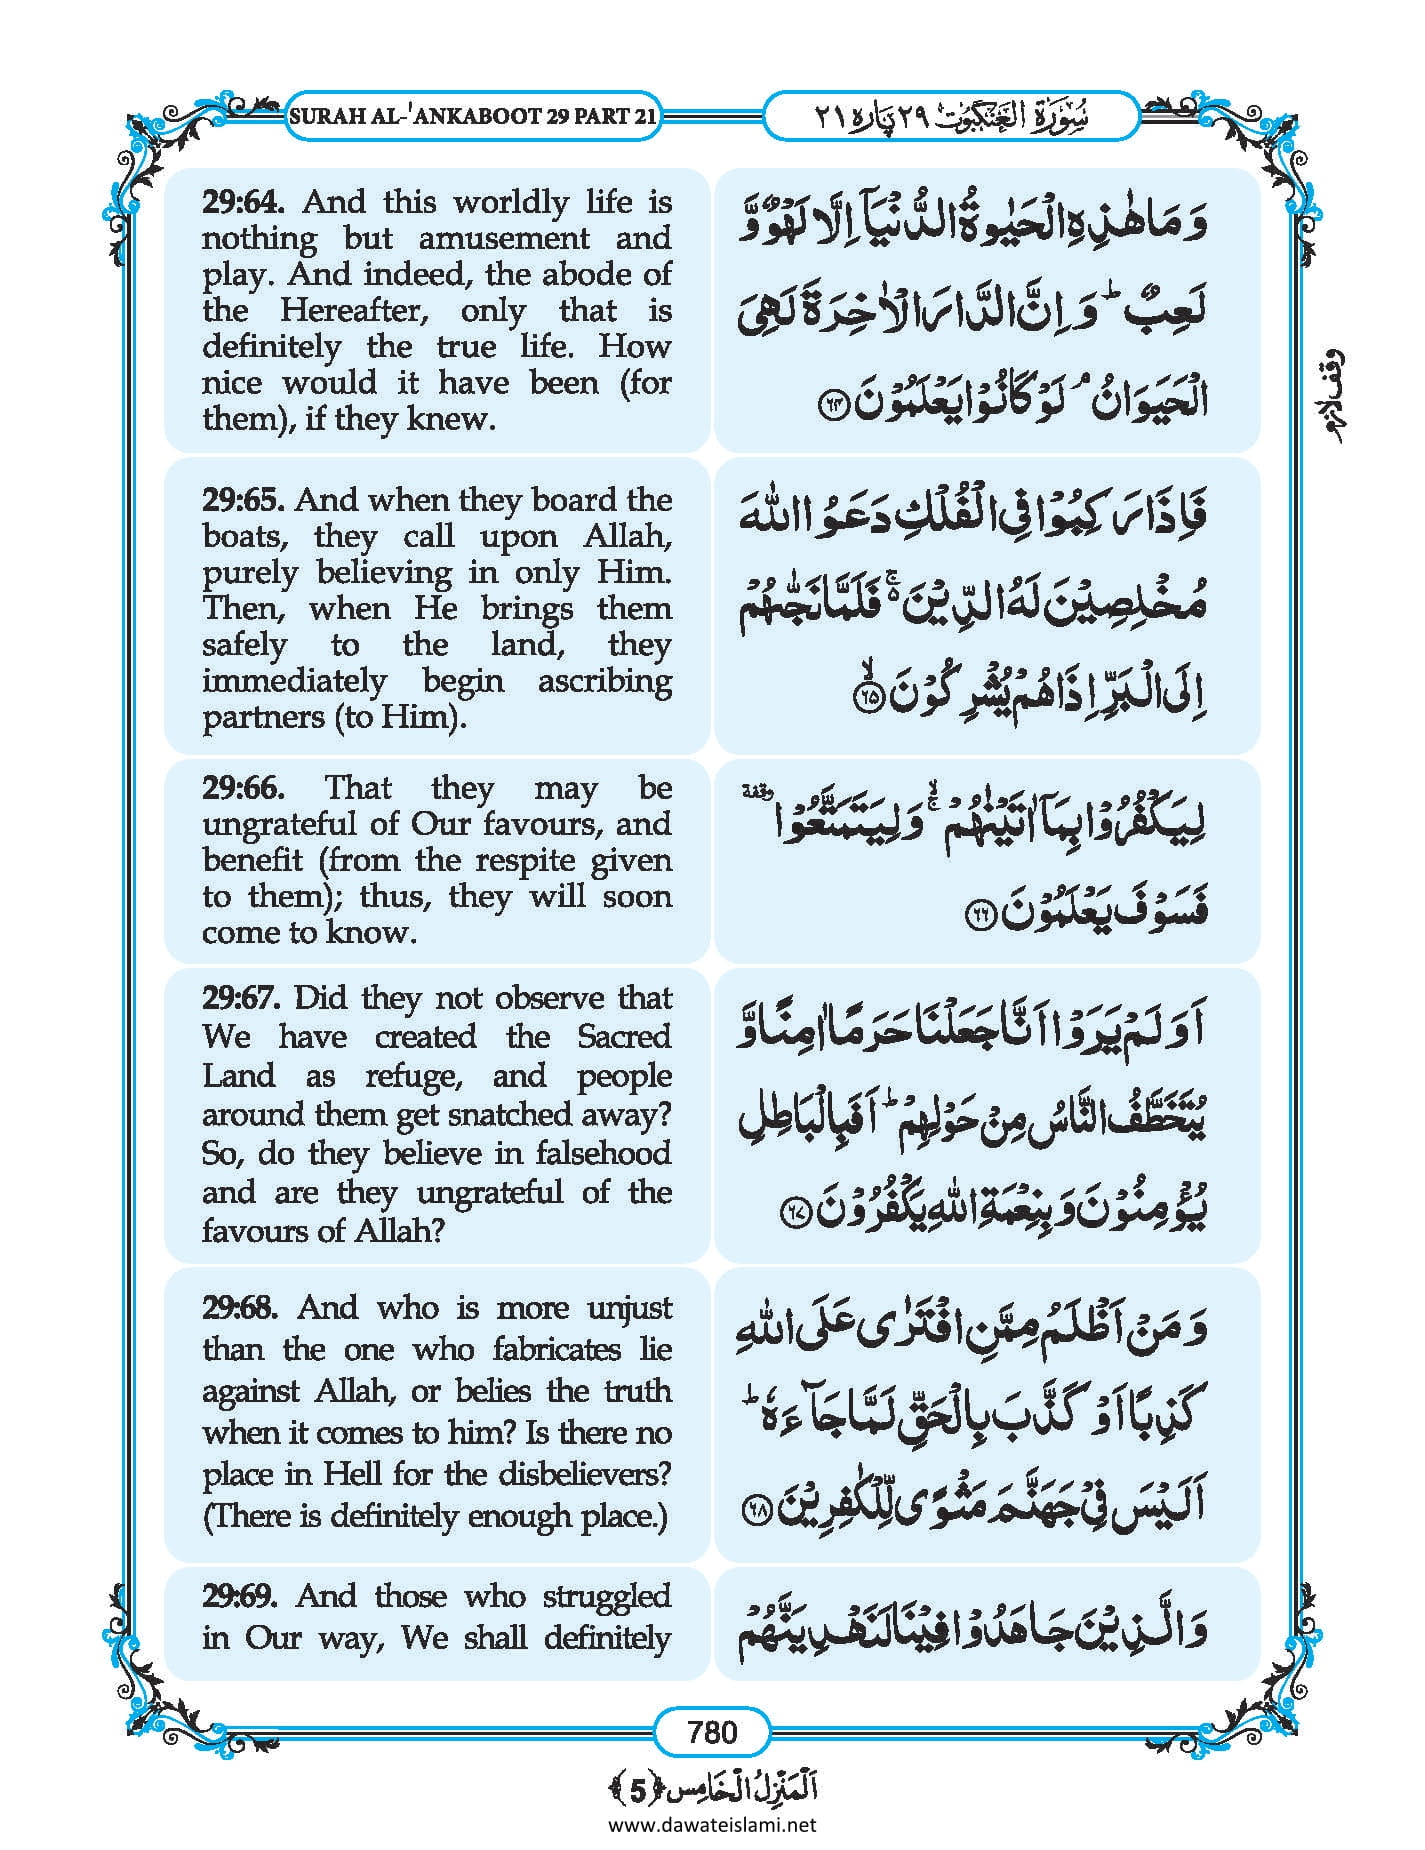 SURAH AL-'ANKABOOT 29 PART 21
سُوۡرَۃُ الۡعَنۡکَبُوۡت ۲۹ پارہ ۲۱
29:64. And this worldly life is
nothing but amusement and
play. And indeed, the abode of
the Hereafter, only that is
definitely the true life. How
nice would it have been (for
them), if they knew.
وَ مَا هٰذِهِ الْحَیٰوةُ الدُّنْیَاۤ اِلَّا لَهْوٌ وَّ
لَعِبٌؕ وَ اِنَّ الدَّارَ الْاٰخِرَةَ لَهِیَ
الْحَیَوَانُۘ لَوْ كَانُوْا یَعْلَمُوْنَ ﴿۶۴﴾
وقف لازم
29:65. And when they board the
boats, they call upon Allah,
purely believing in only Him.
Then, when He brings them
safely to the land, they
immediately begin ascribing
partners (to Him).
فَاِذَا رَكِبُوْا فِی الْفُلْكِ دَعَوُا اللّٰهَ
مُخْلِصِیْنَ لَهُ الدِّیْنَ ۚ۬ فَلَمَّا نَجّٰىهُمْ
اِلَى الْبَرِّ اِذَا هُمْ یُشْرِكُوْنَ ﴿ۙ۶۵﴾
29:66. That they may be
ungrateful of Our favours, and
benefit (from the respite given
to them); thus, they will soon
come to know.
لِیَكْفُرُوْا بِمَاۤ اٰتَیْنٰهُمْ ۚۙ وَ لِیَتَمَتَّعُوْا وقفة
فَسَوْفَ یَعْلَمُوْنَ ﴿۶۶﴾
29:67. Did they not observe that
We have created the Sacred
Land as refuge, and people
around them get snatched away?
So, do they believe in falsehood
and are they ungrateful of the
favours of Allah?
اَوَ لَمْ یَرَوْا اَنَّا جَعَلْنَا حَرَمًا اٰمِنًا وَّ
یُتَخَطَّفُ النَّاسُ مِنْ حَوْلِهِمْؕ اَفَبِالْبَاطِلِ
یُؤْمِنُوْنَ وَ بِنِعْمَةِ اللّٰهِ یَكْفُرُوْنَ ﴿۶۷﴾
29:68. And who is more unjust
than the one who fabricates lie
against Allah, or belies the truth
when it comes to him? Is there no
place in Hell for the disbelievers?
(There is definitely enough place.)
وَ مَنْ اَظْلَمُ مِمَّنِ افْتَرٰى عَلَى اللّٰهِ
كَذِبًا اَوْ كَذَّبَ بِالْحَقِّ لَمَّا جَآءَهٗؕ
اَلَیْسَ فِیْ جَهَنَّمَ مَثْوًى لِّلْكٰفِرِیْنَ ﴿۶۸﴾
29:69. And those who struggled
in Our way, We shall definitely
وَ الَّذِیْنَ جَاهَدُوْا فِیْنَا لَنَهْدِیَنَّهُمْ
780
اَلْمَنْزِلُ الْخَامِس ﴿5﴾
www.dawateislami.net